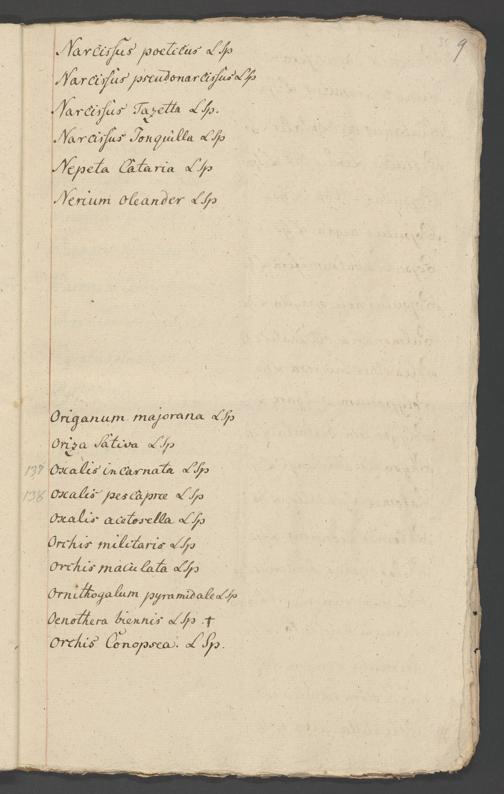 9
Narcissus poeticus LSp
Narcissus pseudonarcissus LSp
Narcissus Tazetta LSp.
Narcissus Jonquilla LSp
Nepeta Cataria LSp
Nerium oleander LSp
Origanum majorana LSp
Oriza Sativa LSp
137 Oxalis incarnata LSp
138 Oxalis pescapræ LSp
Oxalis acetosella LSp
Orchis militaris LSp
Orchis maculata LSp
Ornithogalum pyramidale LSp
Oenothera biennis LSp †
Orchis Conopsea. LSp.